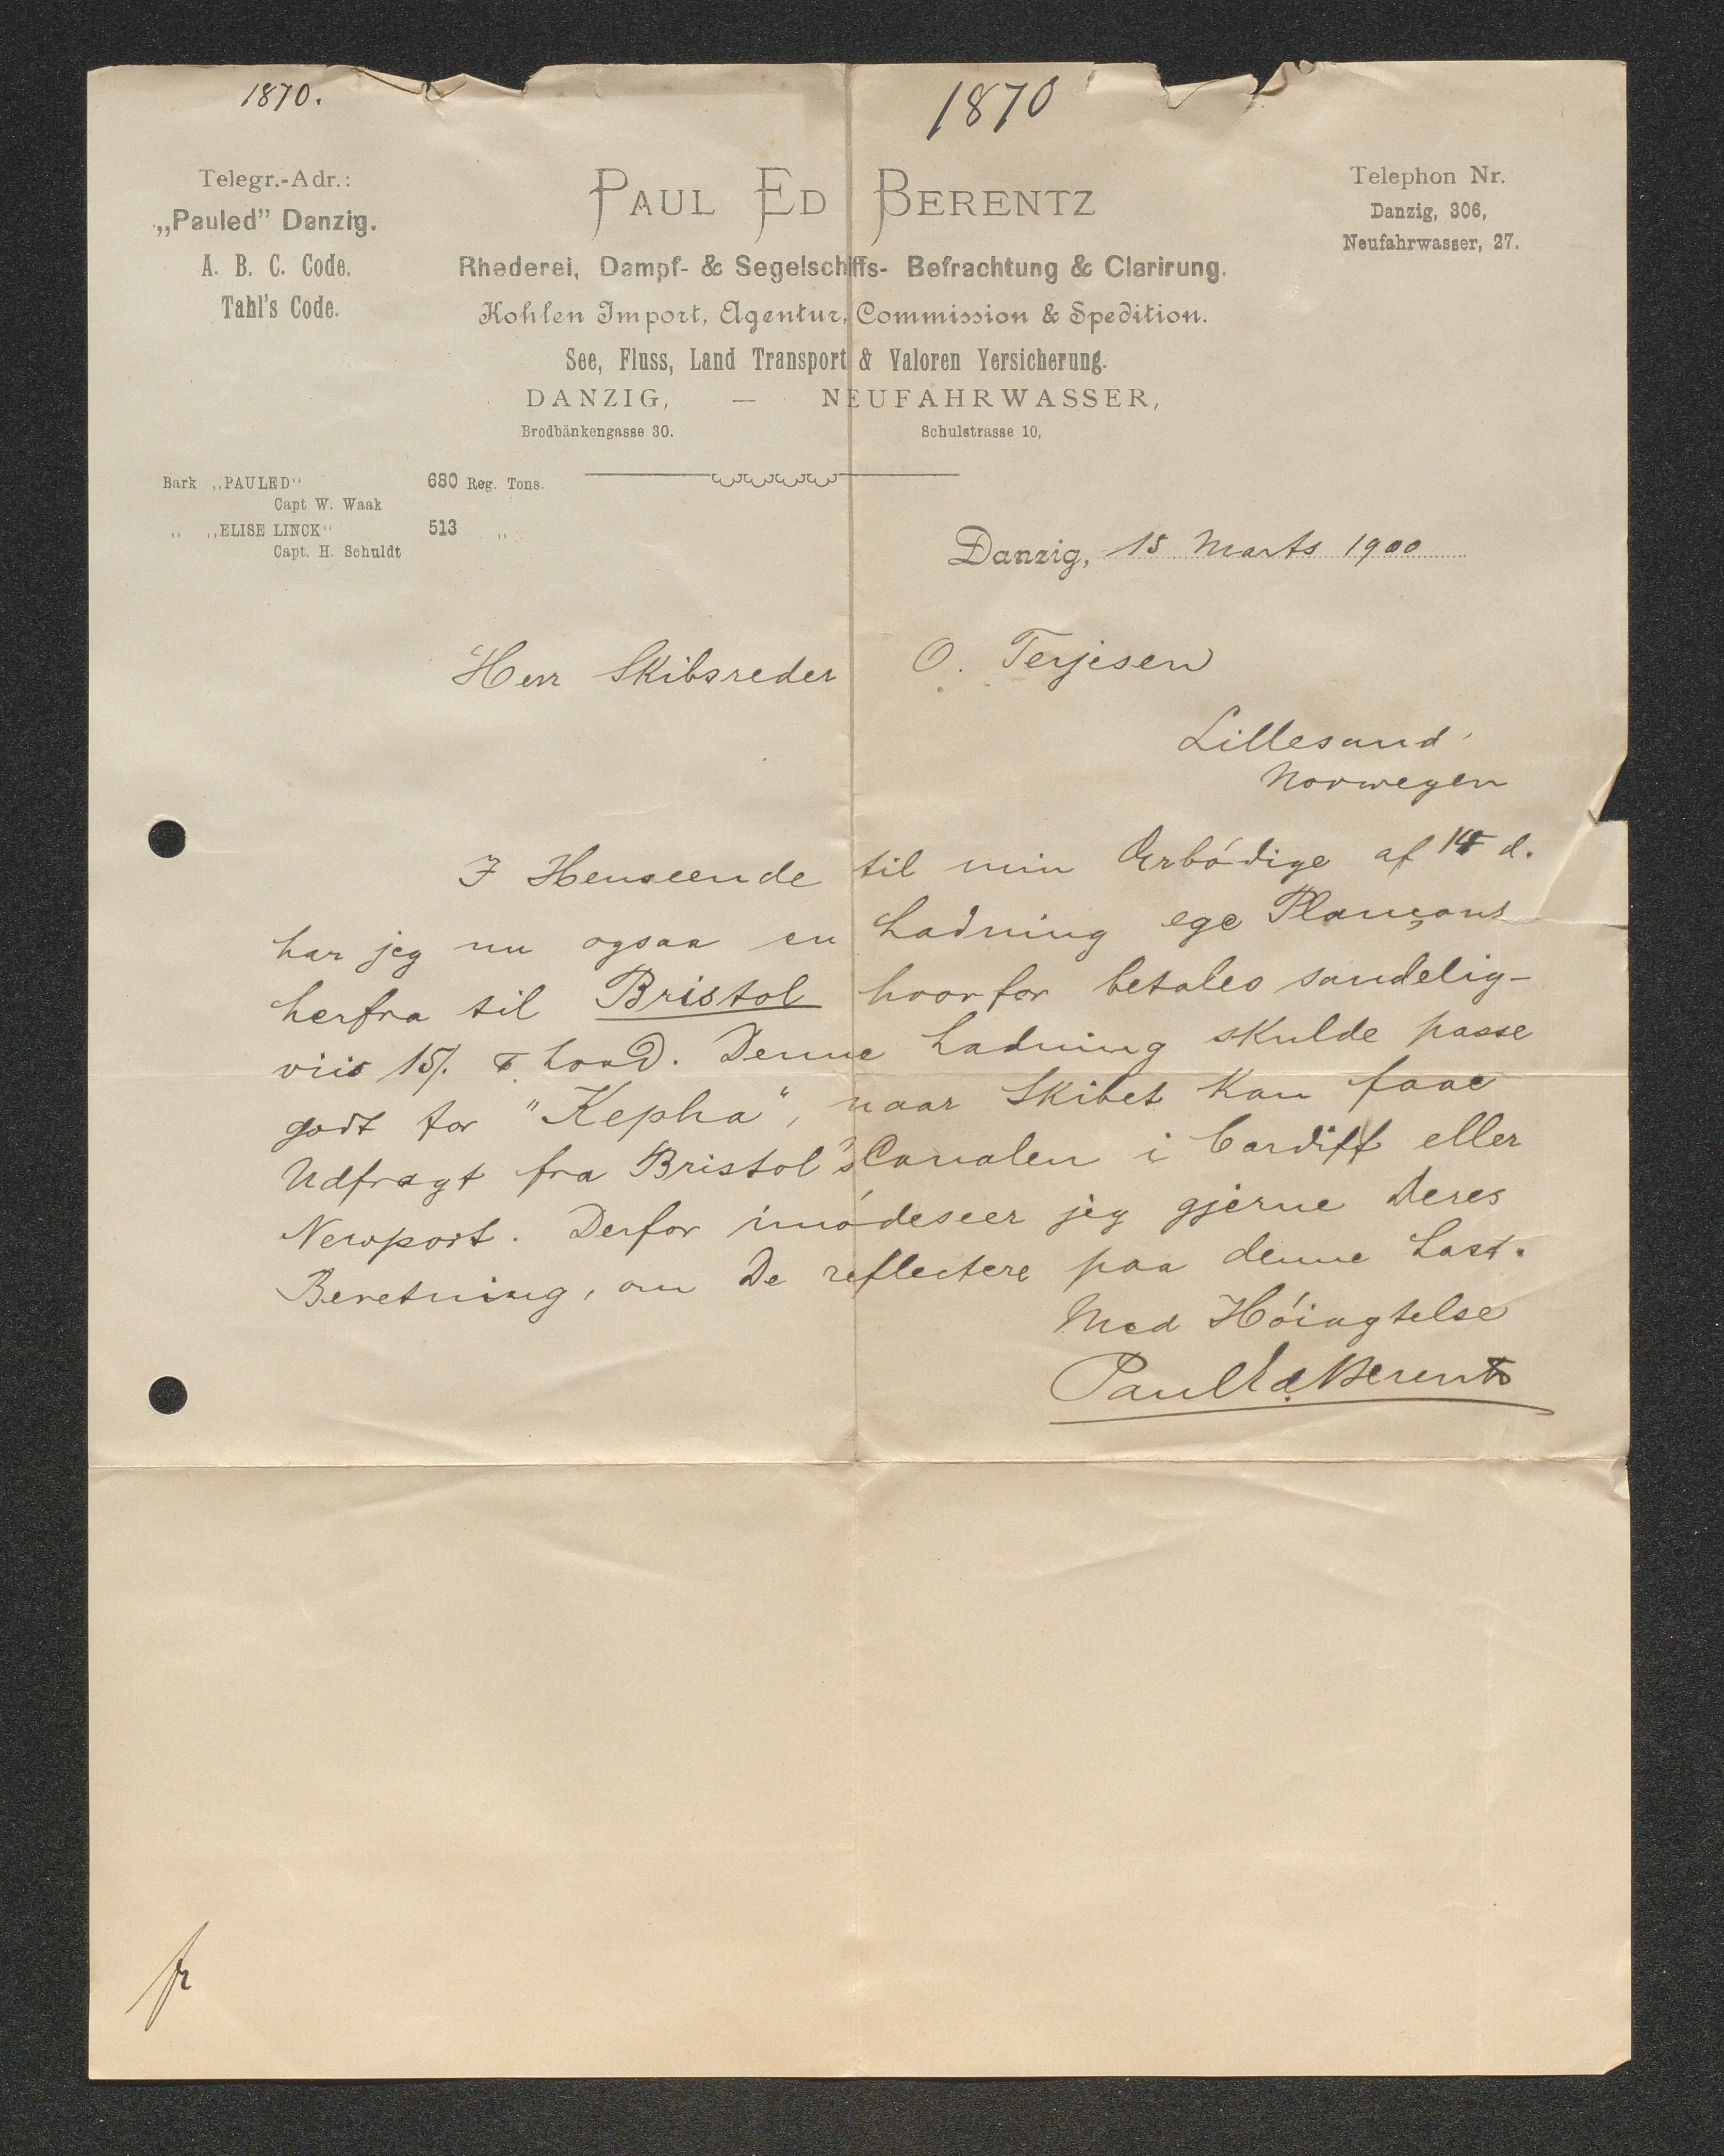 1870.
1870
Telegr.-Adr.:
„Pauled” Danzig.
A. B. C. Code.
Tahl's Code.
PAUL ED BERENTZ
Rhederei, Dampf- & Segelschiffs- Befrachtung & Clarirung.
Kohlen Import, Agentur, Commission & Spedition.
See, Fluss, Land Transport & Valoren Versicherung.
DANZIG, — NEUFAHRWASSER,
Brodbänkengasse 30. Schulstrasse 10,
Telephon Nr.
Danzig, 306,
Neufahrwasser, 27.
Bark „PAULED“ 680 Reg. Tons.
Capt W. Waak
„ „ELISE LINCK“ 513 „
Capt. H. Schuldt
Danzig, 15 Marts 1900
Herr Skibsreder O. Terjesen
Lillesand
Norwegen
I Henseende til min Ærbódige af 14 d.
har jeg nu ogsaa en Ladning ege Plançons
herfra til Bristol hvorfor betales sandelig-
viis 15/. Load. Denne Ladning skulde passe
godt for "Kepha", naar Skibet kan faae
Udfragt fra Bristol's Canalen i Cardiff eller
Newport. Derfor imódeseer jeg gjerne Deres
Beretning, om De reflectere paa denne Last.
Med Hóiagtelse
Paul Ed. Berentz